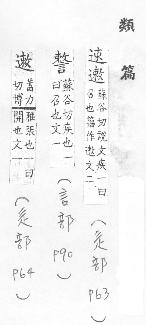 類篇
速遬 蘇谷切說文疾一曰
召也籀作遬文二
(辵部 p63)
蘇谷切疾也一
曰召也文一
(言部 p90)
遬 蓄力切博
雅張也一曰
開也文一
(辵部 p64)